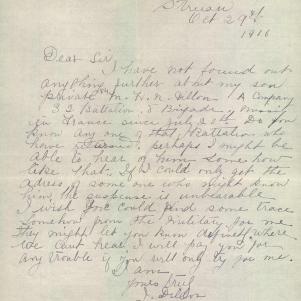 Struan
Oct 29th
1916
Dear Sir
I have not found out
anything further about my son
Private W. H. N. Dillon A Company
32 Battalion, 8 Brigade, missing
in France since July 20th Do you
know any one of that Battalion who
have returned. perhaps I might be
able to hear of him somehow
like that. If I could only get the
adress of some one who might know
him, the suspense is unbearable
I wish you could find some trace
somehow from the Military for me
they might let you know definitely where
we cant hear. I will pay you for
any trouble if you will only try for me.
I am
yours truly
J. Dillon